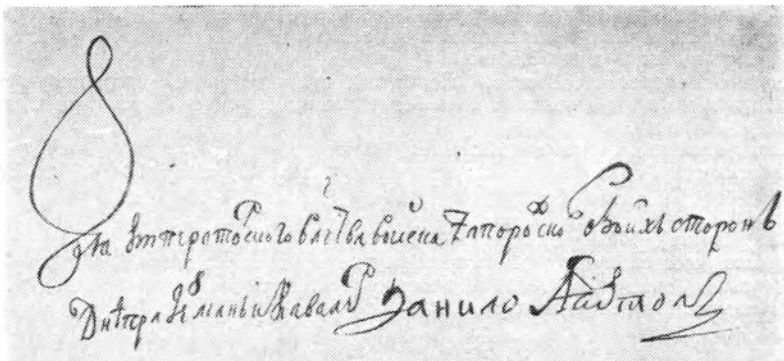 Его Імператорского влства войска Запорозкого обоихъ сторонъ
Днѣпра Гетманъ и Кавалеръ Данило Апостол